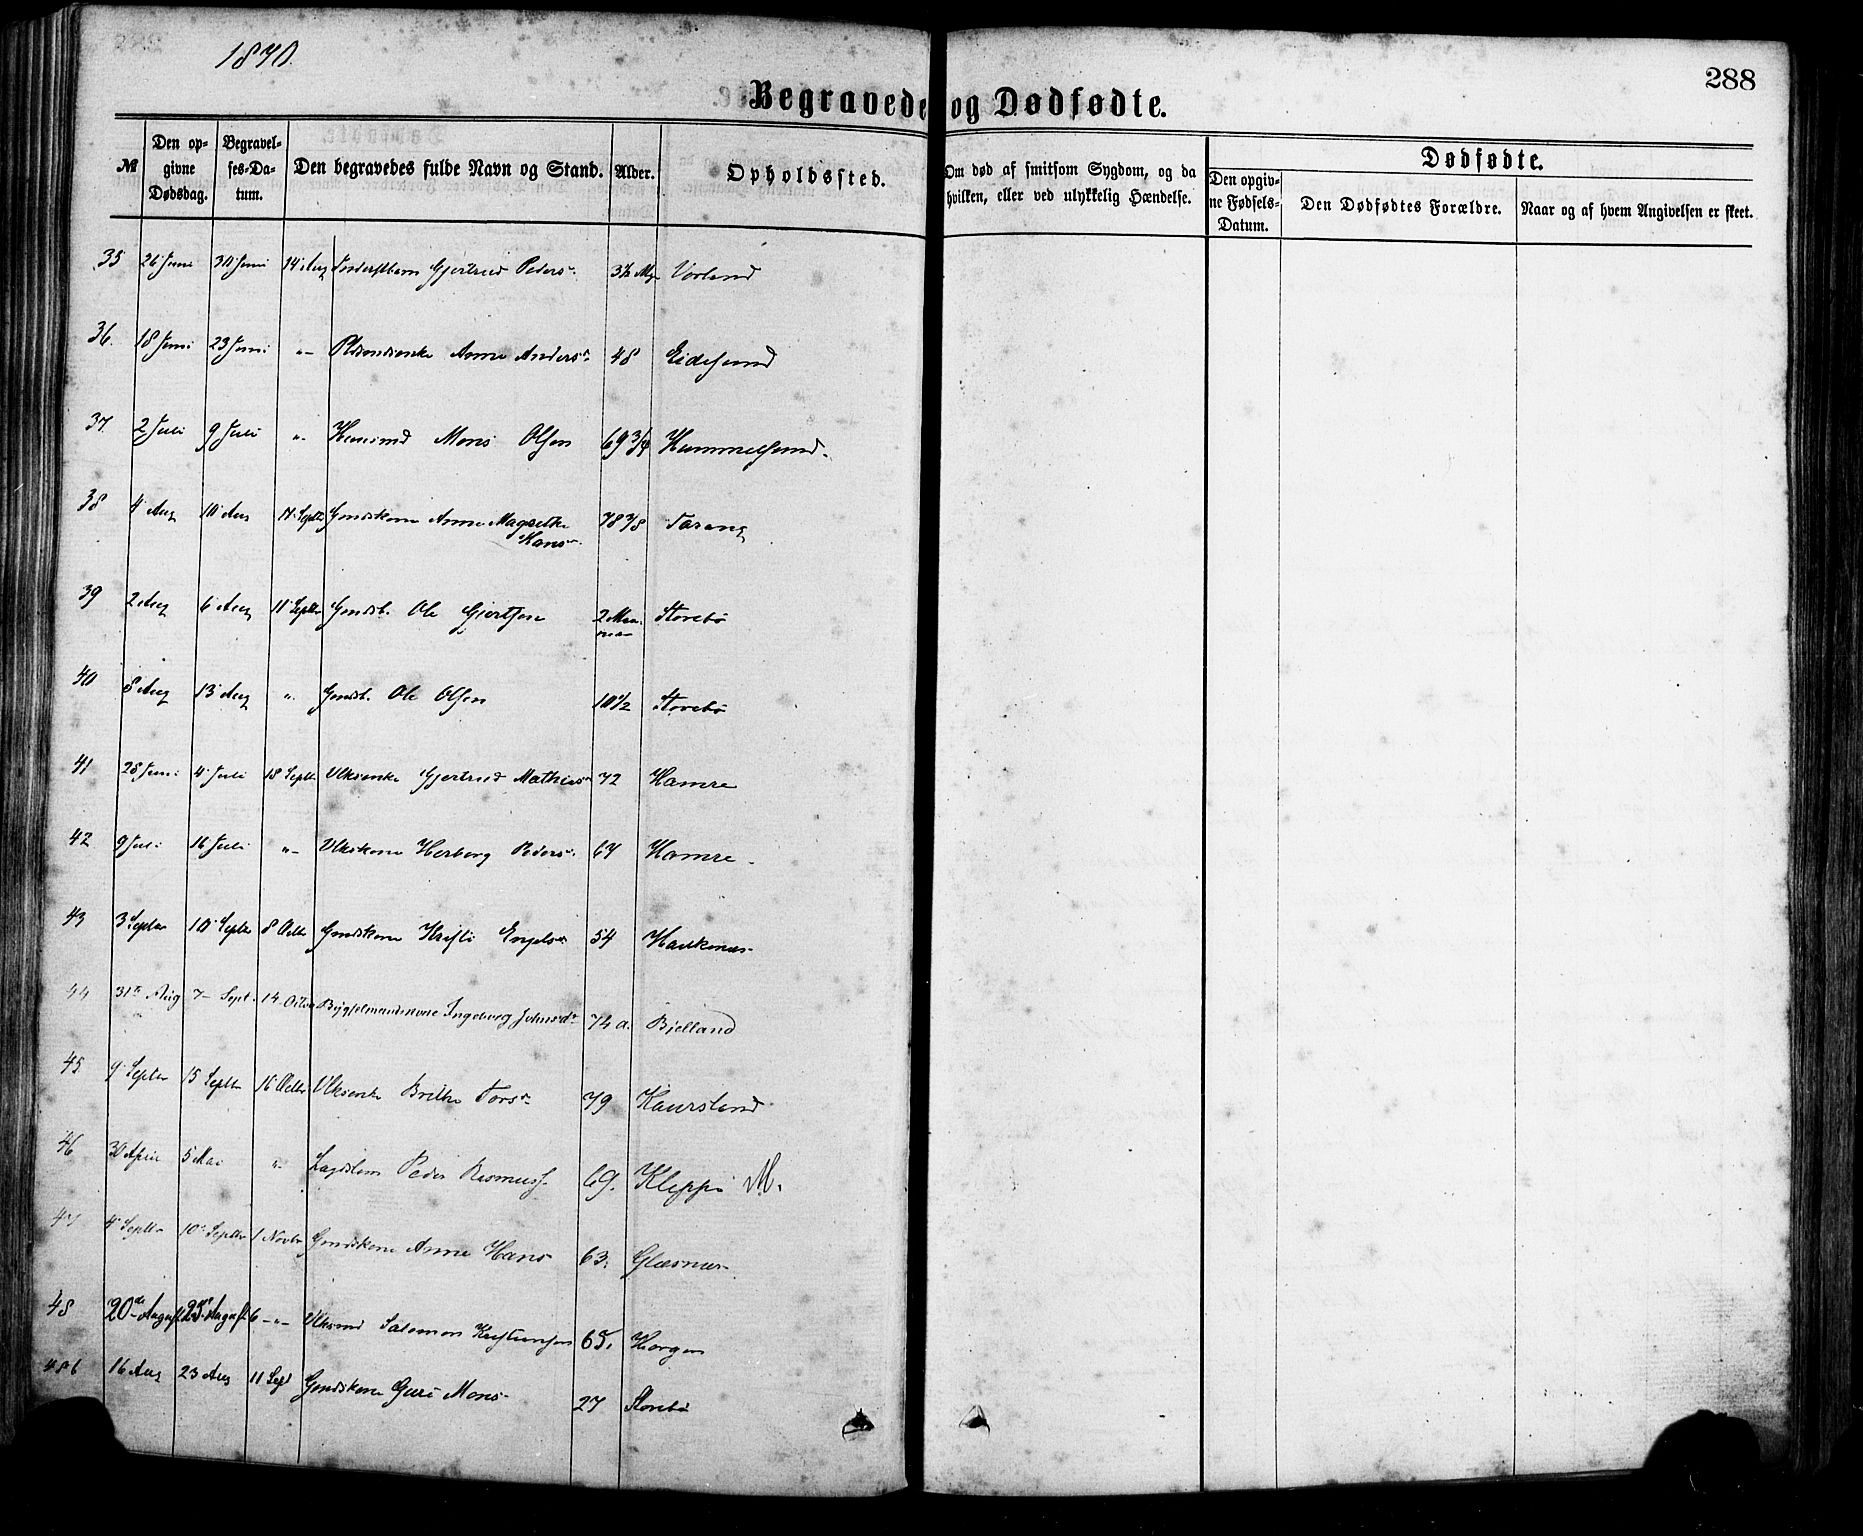 1870.
288
Begravede og Dødfødte.
№ Den opgivne Dødsdag. Begravelses-Datum. Den begravedes fulde Navn og Stand. Alder. Opholdssted. Om død af smitsom Sygdom, og da hvilken, eller ved ulykkelig Hændelse. Dødfødte.
Den opgivne Fødsels-Datum. Den Dødfødtes Forældre. Naar og af hvem Angivelsen er skeet.
35 26 Juni 30 Juni 14 Aug Gjertrud Peders Vorland
36. 18 Juni 23 Juni -"- Anne Anders 48 Eidesund
37 2 Juli 9 Juli " Husmd Mons Olsen 69 3/4 Hummelsund.
38 4 Aug 10 Aug 11 Septbr Gmdskone Anne Magrethe Hans 78 3/8
39 2 Aug 6 Aug 11 Septbr Gmdsb. Ole Gjertsen 2 Maaneder Storebø
40 8 Aug 13 Aug " Gmdsb. Ole Olsen 10 1/2 Storebø
41 28 Juni 4 Juli 18 Septbr Vlksenke Gjertrud Mathias 72 Hamre
42 9 Juli 16 Juli -"- Vlkskone Herborg Peders 67 Hamre
43 3 Septbr 10 Septbr 8 Octbr Gmdskone Kristi Engels 54 Haukenæs
44 31te Aug 7 Sept. 14 Octbr Ingeborg Johnsdr 74 a. Bjelland
45 9 Septbr 15 Septbr 16 Octbr Vlksenke Brithe Tors 79 Haursland
46 30 April 5 Mai " Lægdslem Peder Rasmuss. 69. Kleppe M.
47 4 Septbr 10 Septbr 1 Novbr Gmdskone Anne Hans 63. Glæsnæs
48 20de August 25de August 6 -"- Vlksmd Salomon Kristensen 65. Horgen
48b 16 Aug 23 Aug 11 Sept Gmdskone Guri Mons 27 Storebø